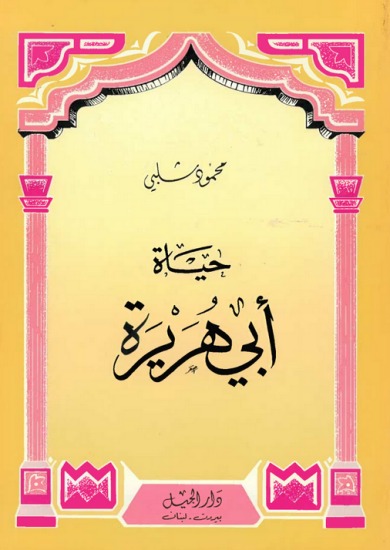 محمود شلبي
حياة
أبي هُرَيْرَة
دار الجيل
بيروت - لبنان